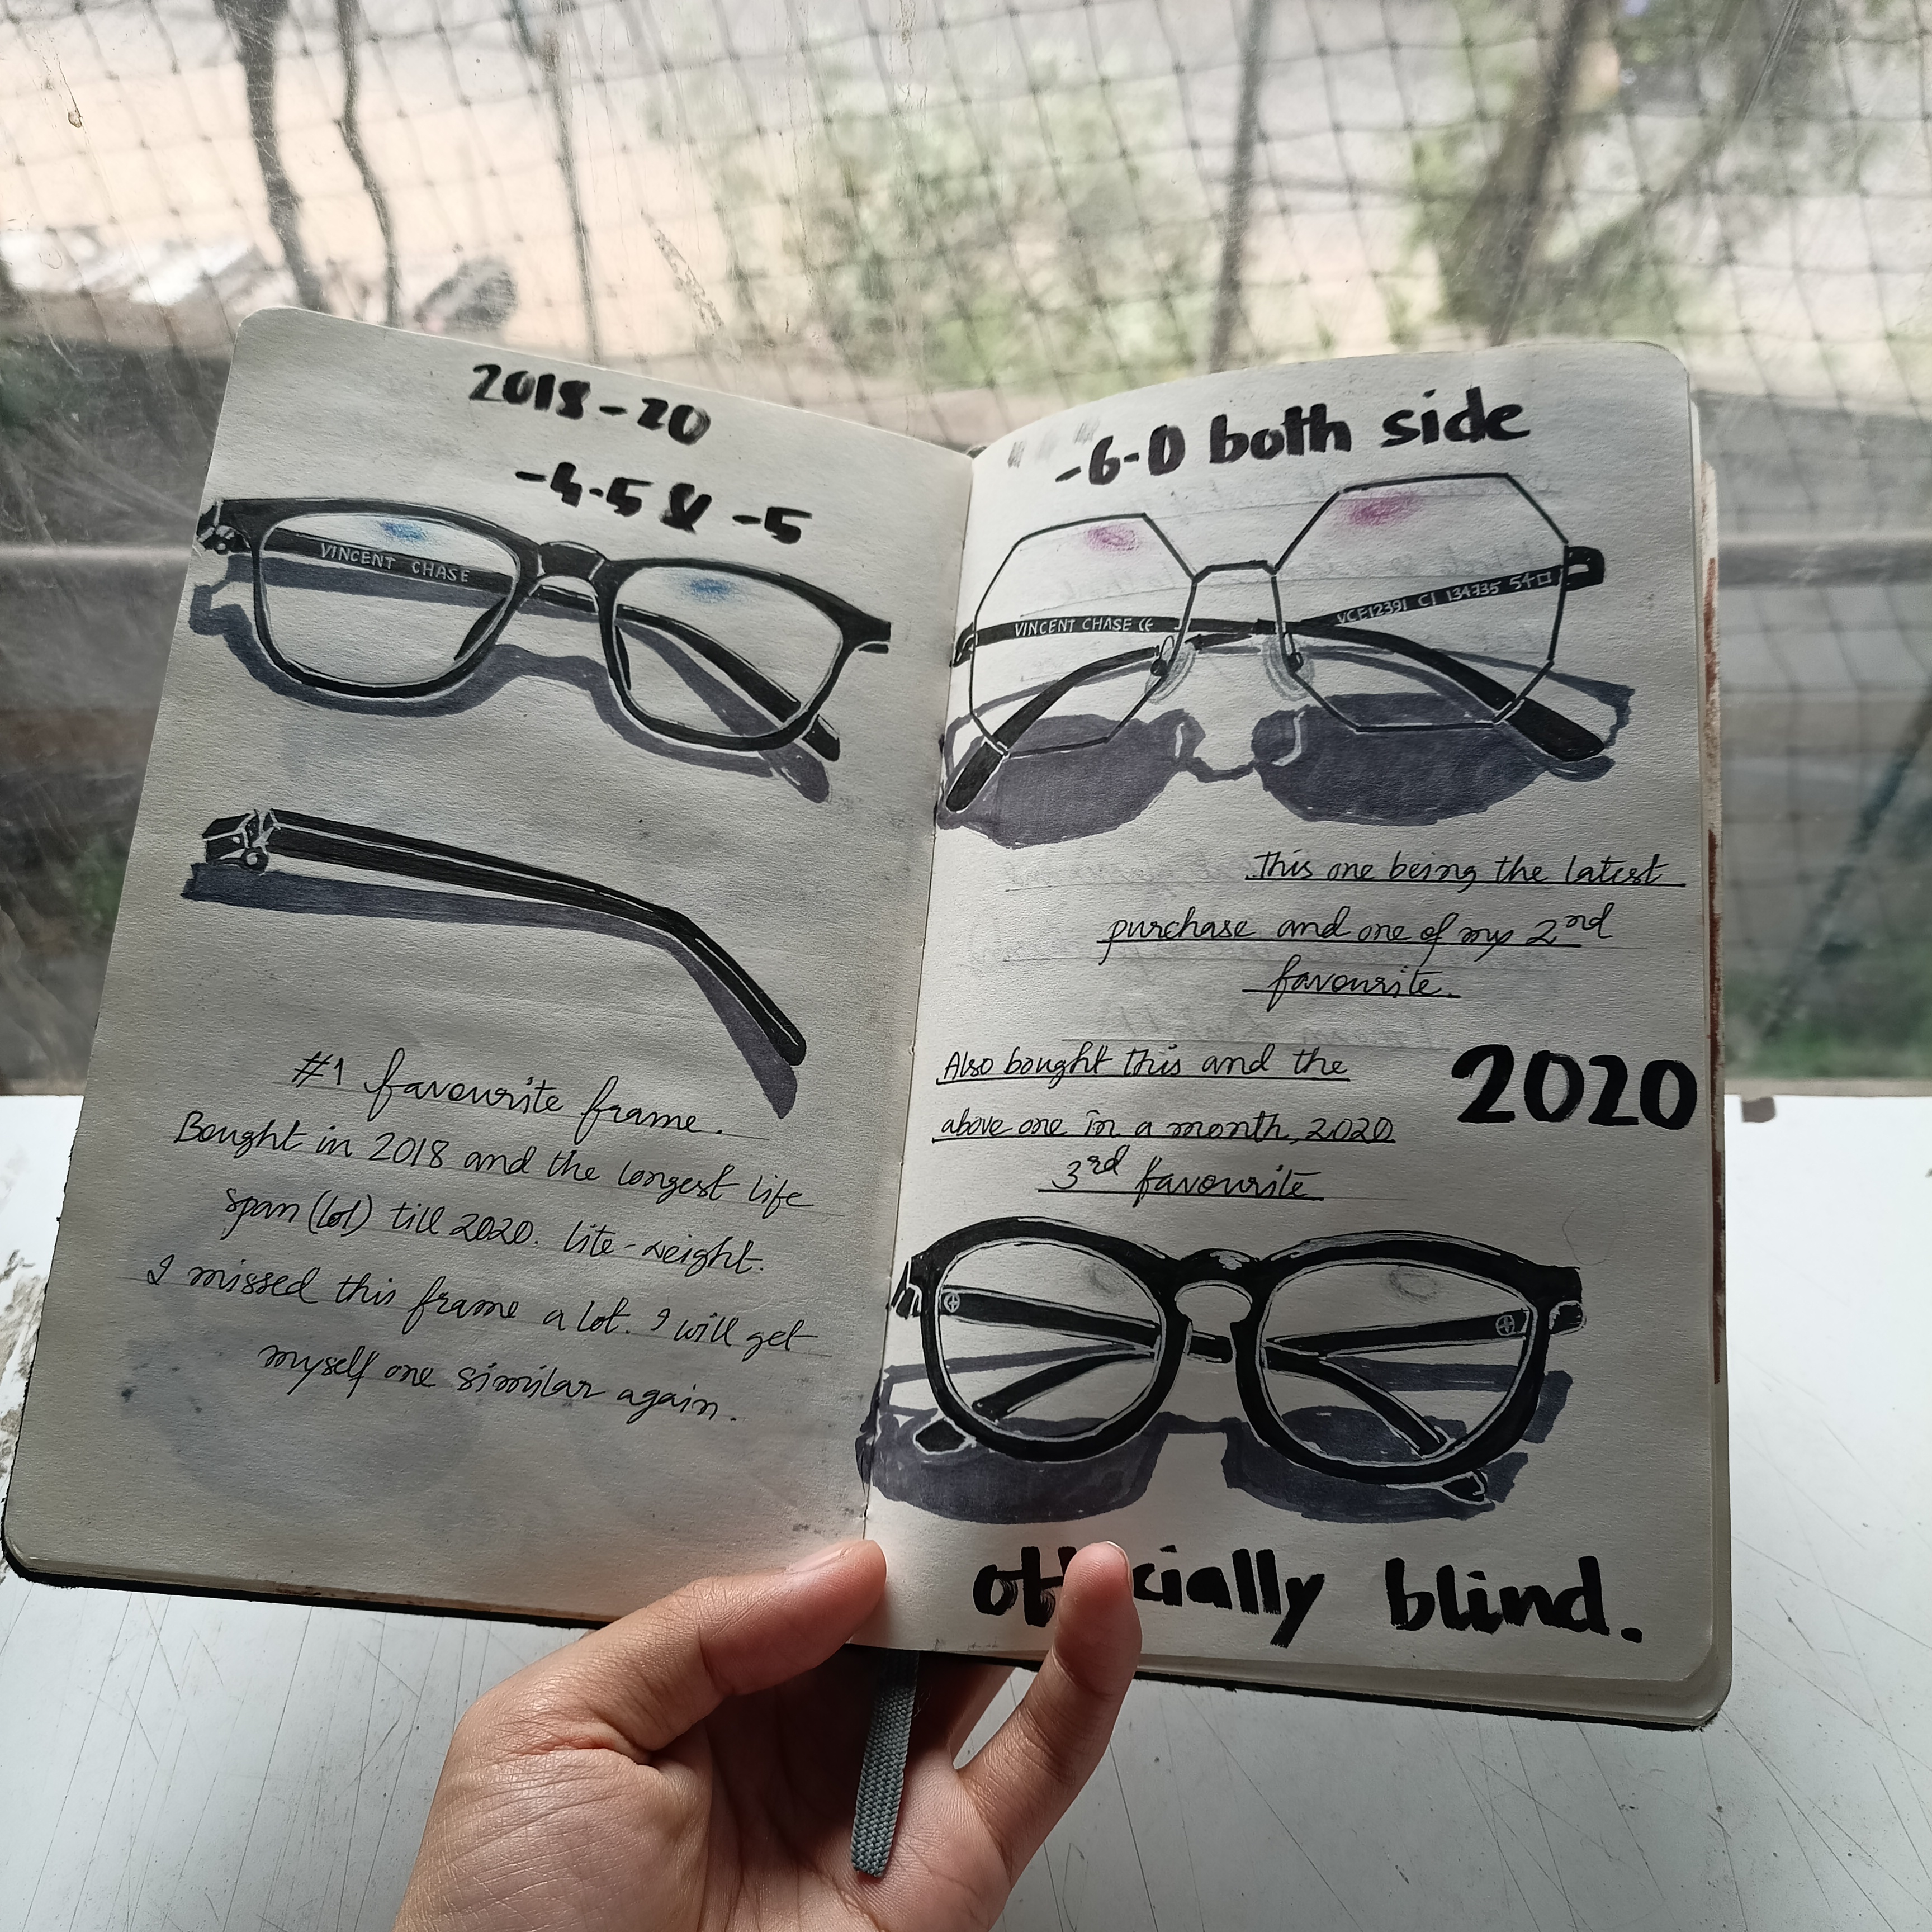 2018-20
-4.5 & -5
VINCENT CHASE
#1 favourite frame.
Bought in 2018 and the longest life
span (lot) till 2020. lite-weight.
I missed this frame a lot. I will get
myself one similar again.
-6.0 both side
VINCENT CHASE CE
VCE12391 C1 134735 54□
This one being the latest
purchase and one of my 2nd
favourite.
Also bought this and the
above one in a month, 2020
3rd favourite
2020
blind.